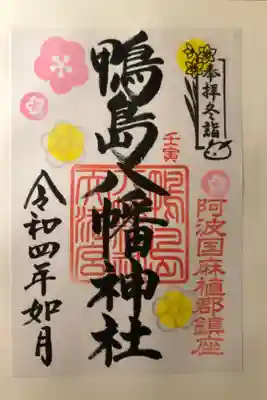 奉拝冬詣
阿波国麻植郡鎮座
壬寅
鴨島八幡神社
令和四年如月